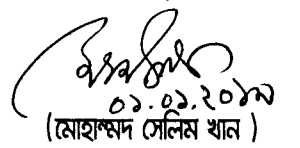 ০১.০১.২০১৭
(মোহাম্মদ সেলিম খান )